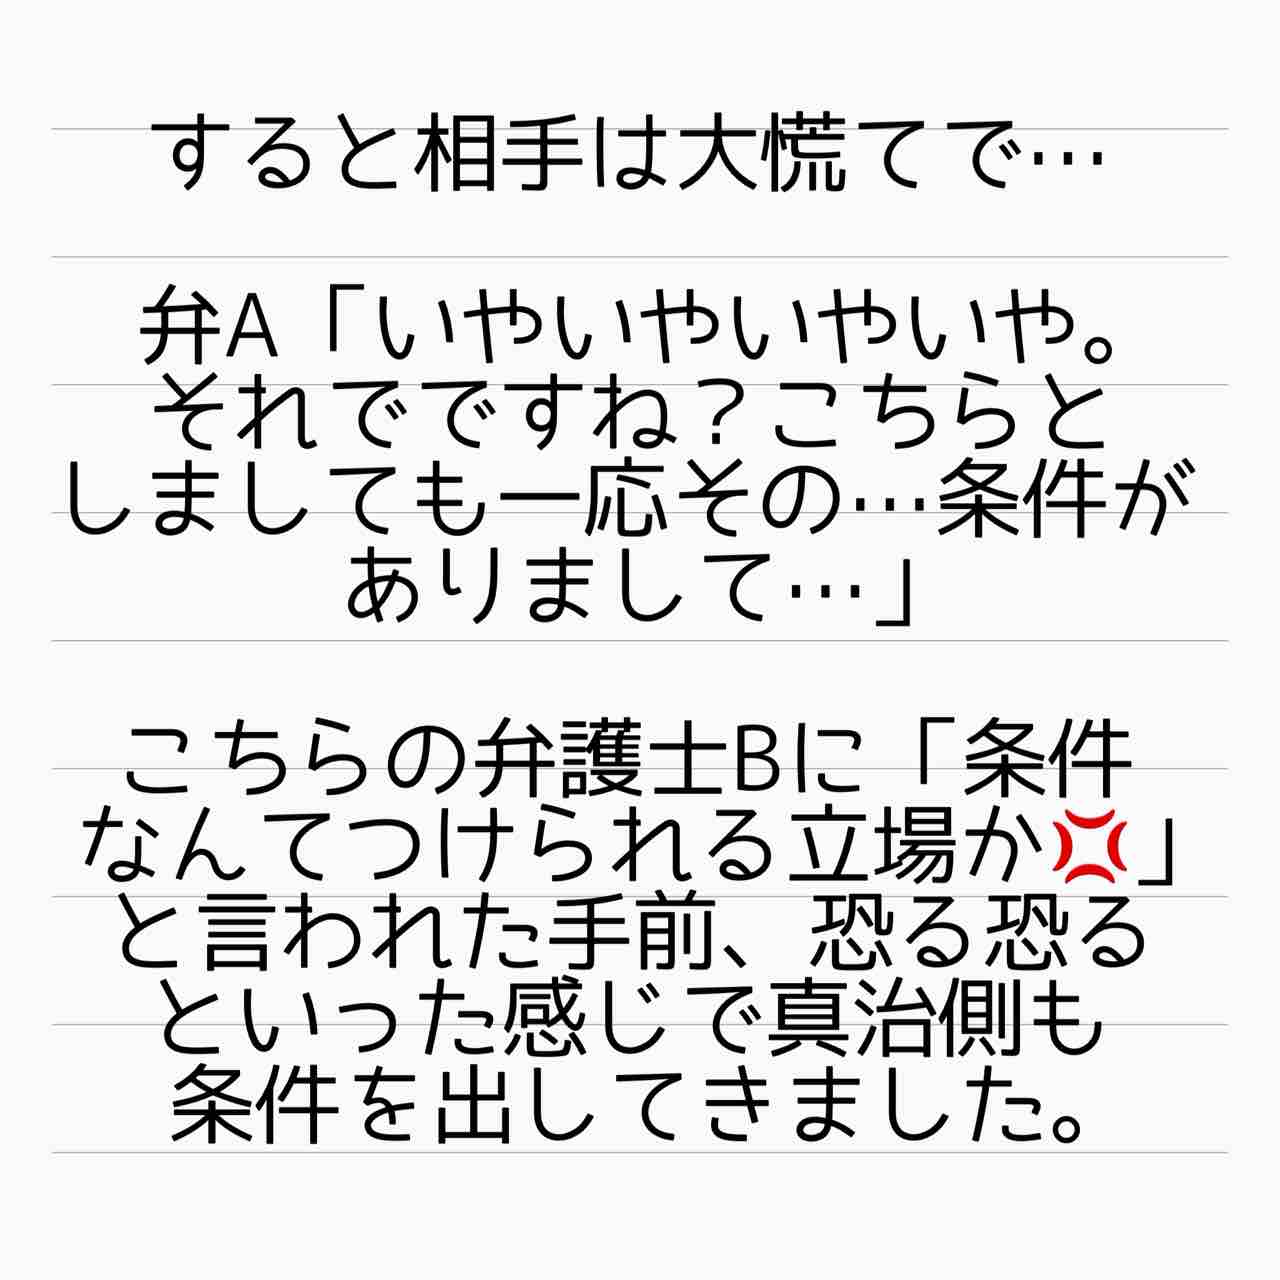 すると相手は大慌てで…
弁A「いやいやいやいや。
それでですね？こちらと
しましても一応その…条件が
ありまして…」
こちらの弁護士Bに「条件
なんてつけられる立場か💢」
と言われた手前、恐る恐る
といった感じで真治側も
条件を出してきました。